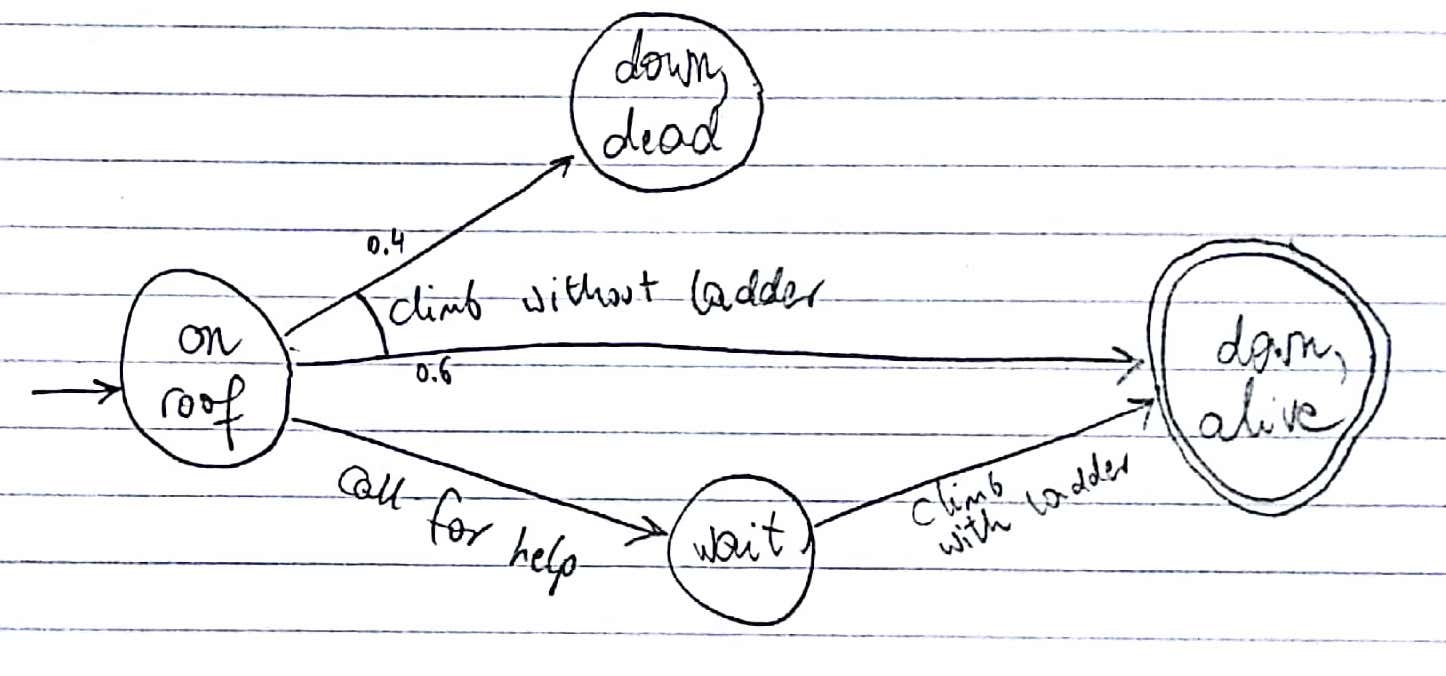 down,
dead
0.4
climb without ladder
on
roof
0.6
down,
alive
call for help
wait
climb
with ladder